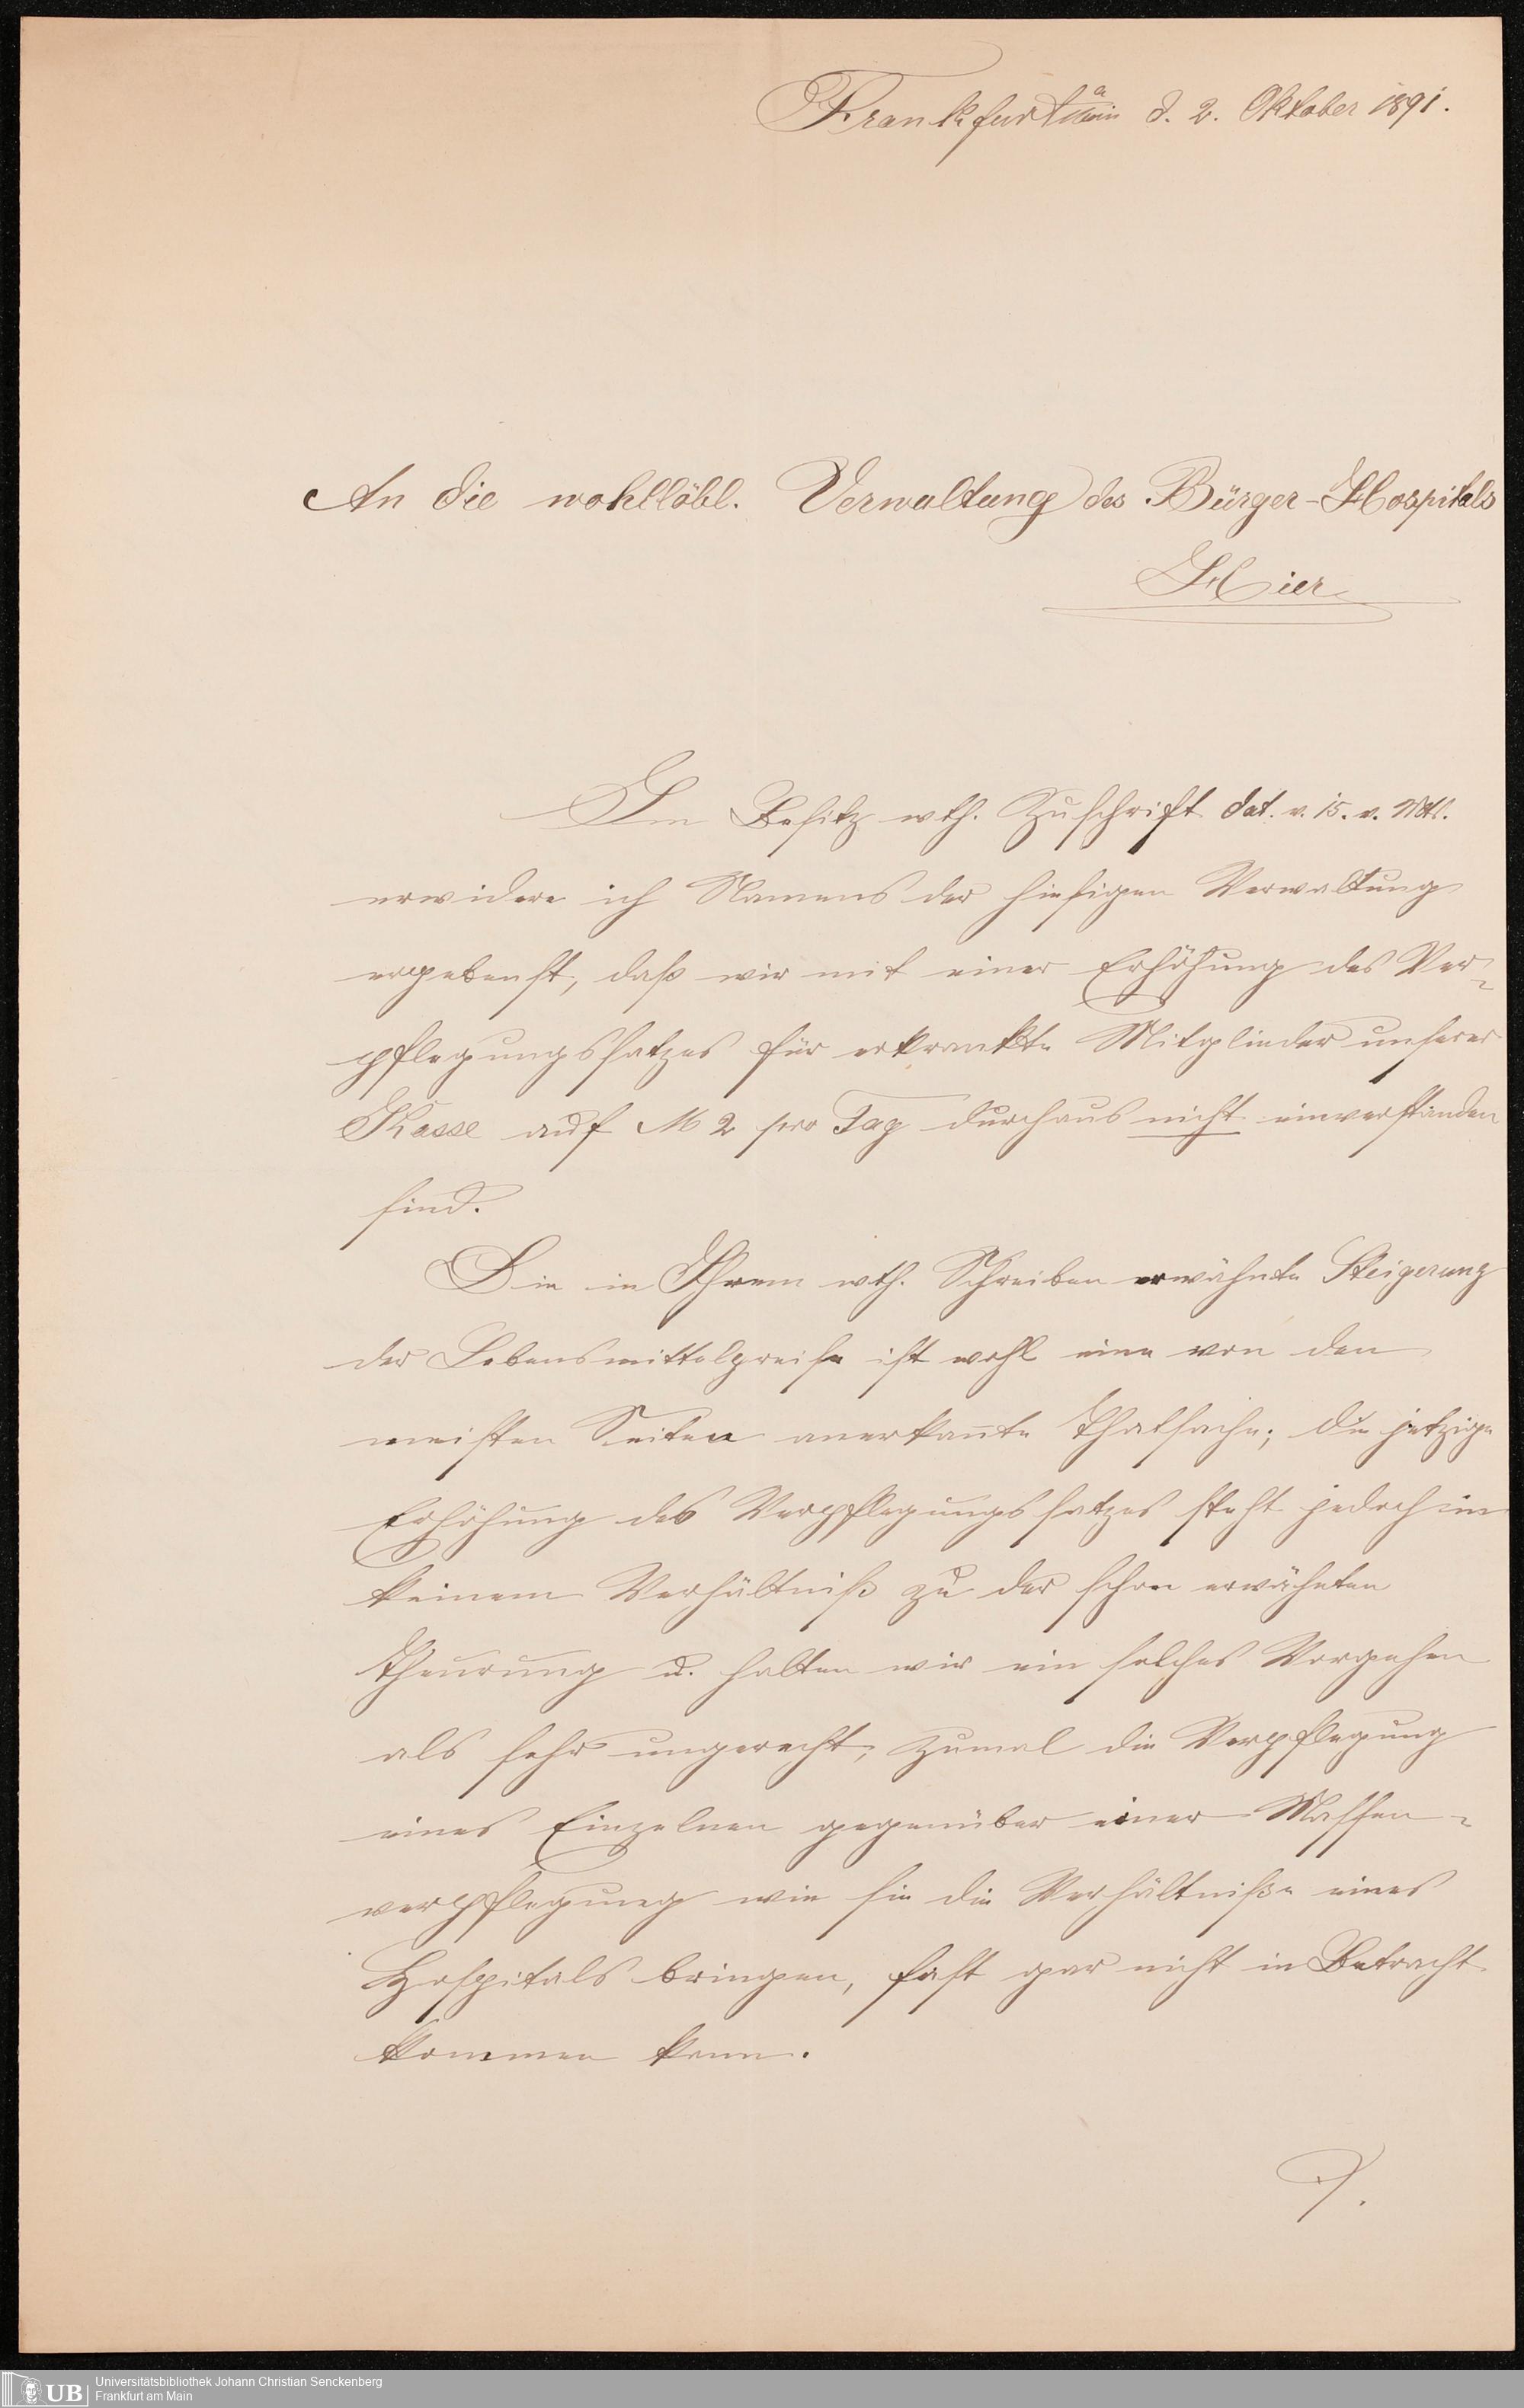 Frankfurt a Main d. 2. Oktober 1891.
An die wohllöbl. Verwaltung des Bürger-Hospitals
Hier
Im Besitz wth. Zuschrift dat. v. 15. v. Mts.
erwidere ich Namens der hiesigen Verwaltung
ergebenst, daß wir mit einer Erhöhung des Ver-
pflegungssatzes für erkrankte Mitglieder unserer
Kasse auf M 2 pro Tag durchaus nicht einverstanden
sind.
Die in Ihrem wth. Schreiben erwähnte Steigerung
der Lebensmittelpreise ist wohl eine von den
meisten Seiten anerkan̄te Thatsache; die jetzige
Erhöhung des Verpflegungssatzes steht jedoch in
keinem Verhältniß zu der schon erwähnten
Theurung u. halten wir ein solches Vorgehen
als sehr ungerecht, zumal die Verpflegung
eines Einzelnen gegenüber einer Massen-
verpflegung wie sie die Verhältniße eines
Hospitals bringen, fast gar nicht in Betracht
kommen kann.
Universitätsbibliothek Johann Christian Senckenberg
UB Frankfurt am Main